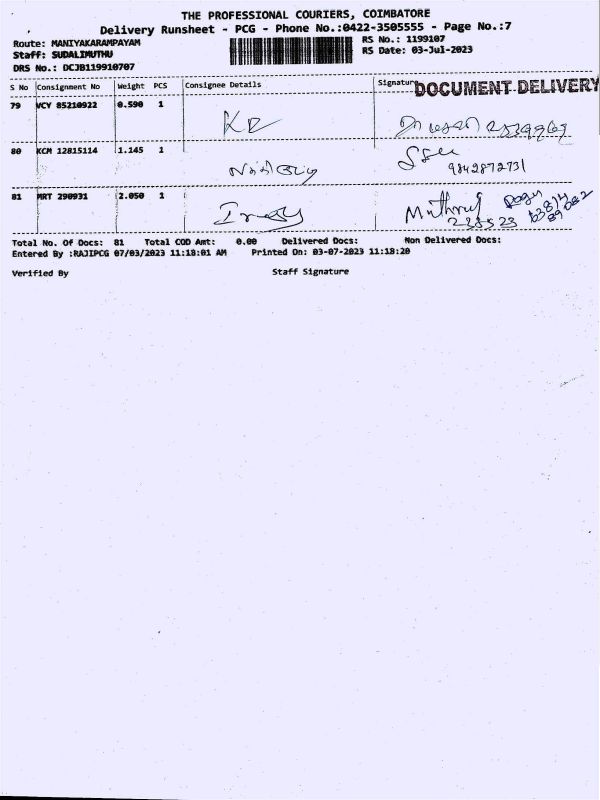 THE PROFESSIONAL COURIERS, COIMBATORE
Delivery Runsheet - PCG - Phone No.:0422-3505555 - Page No.:7
Route: MANIYAKARAMPAYAM
RS No.: 1199107
Staff: SUDALIMUTHU
RS Date: 03-Jul-2023
DRS No.: DCJB119910707
S No Consignment No Weight PCS Consignee Details Signature
DOCUMENT DELIVERY
79 VCY 85210922 0.590 1
80 KCM 12815114 1.145 1
9842872731
81 MRT 290931 2.050 1
Total No. Of Docs: 81 Total COD Amt: 0.00 Delivered Docs: Non Delivered Docs:
Entered By :RAJIPCG 07/03/2023 11:18:01 AM Printed On: 03-07-2023 11:18:20
Verified By Staff Signature